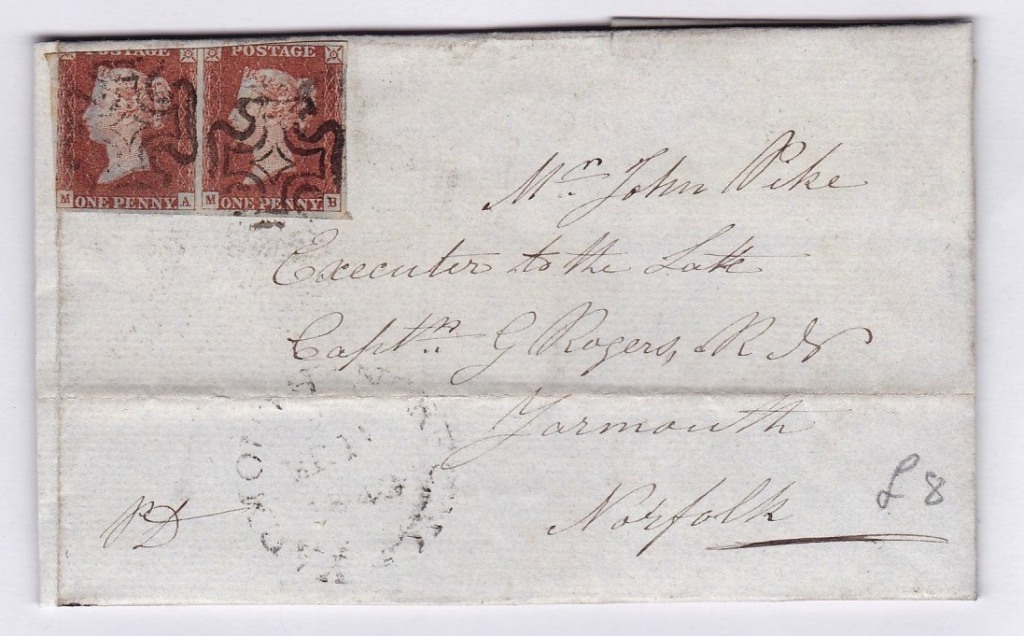 POSTAGE POSTAGE
M ONE PENNY A M ONE PENNY. B
Mr. John Pike
Executer to the Late
Captn. G Rogers, R N
Yarmouth
Norfolk
£8
Pd